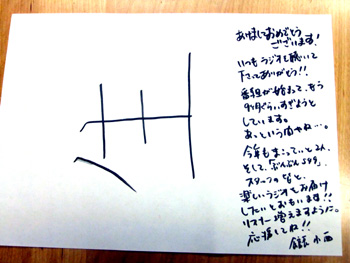 あけましておめでとう
ございます!
いつもラジオを聴いて
下さってありがとう!!
番組が始まって、もう
9ヶ月ぐらいすぎようと
しています。
あっという間やね…。
今年も
そして、「ぶんぶん599」
スタッフの皆と、
楽しいラジオをお届け
したいとおもいます!!
リスナー増えますように。
応援してね!!